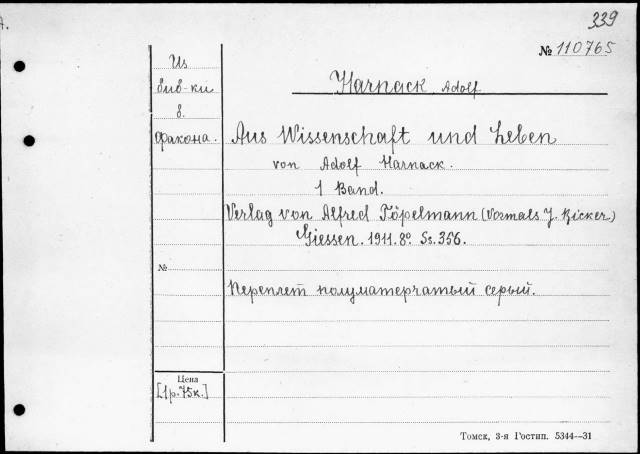 339
№ 110765
Из
биб-ки
в.
Факона.
Harnack Adolf
Aus Wissenschaft und Leben
von Adolf Harnack.
1 Band.
Verlag von Alfred Töpelmann (Vormals J. Ricker.)
Giessen. 1911. 8º. Ss. 356.
№
Переплет полуматерчатый серый.
Цена
[1 р. 75 к.]
Томск, 3-я Гостип. 5344—31